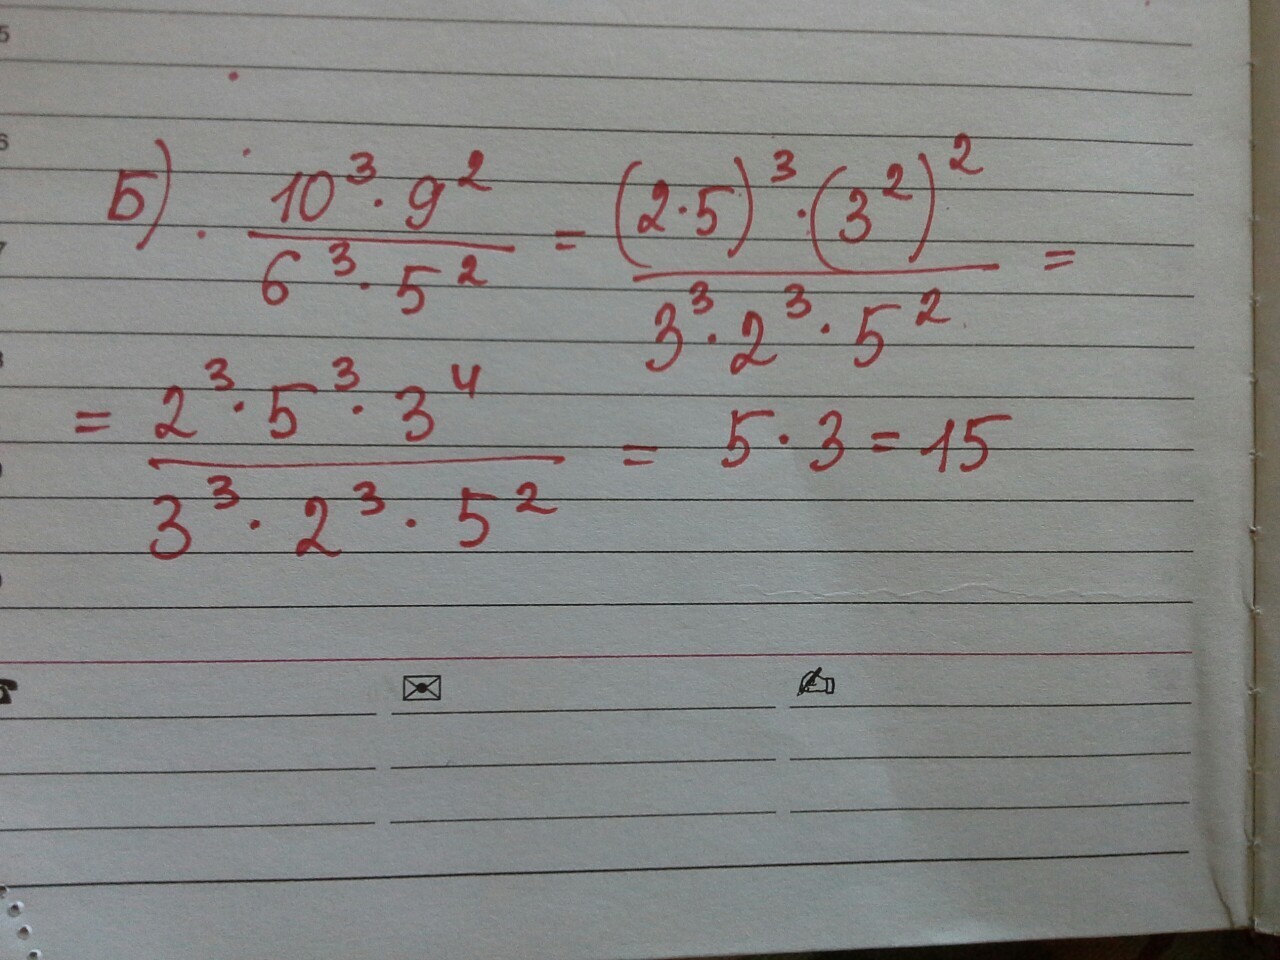 Б) 10³ · 9² / 6³ · 5² = (2·5)³ · (3²)² / 3³ · 2³ · 5² =
= 2³ · 5³ · 3⁴ / 3³ · 2³ · 5² = 5 · 3 = 15